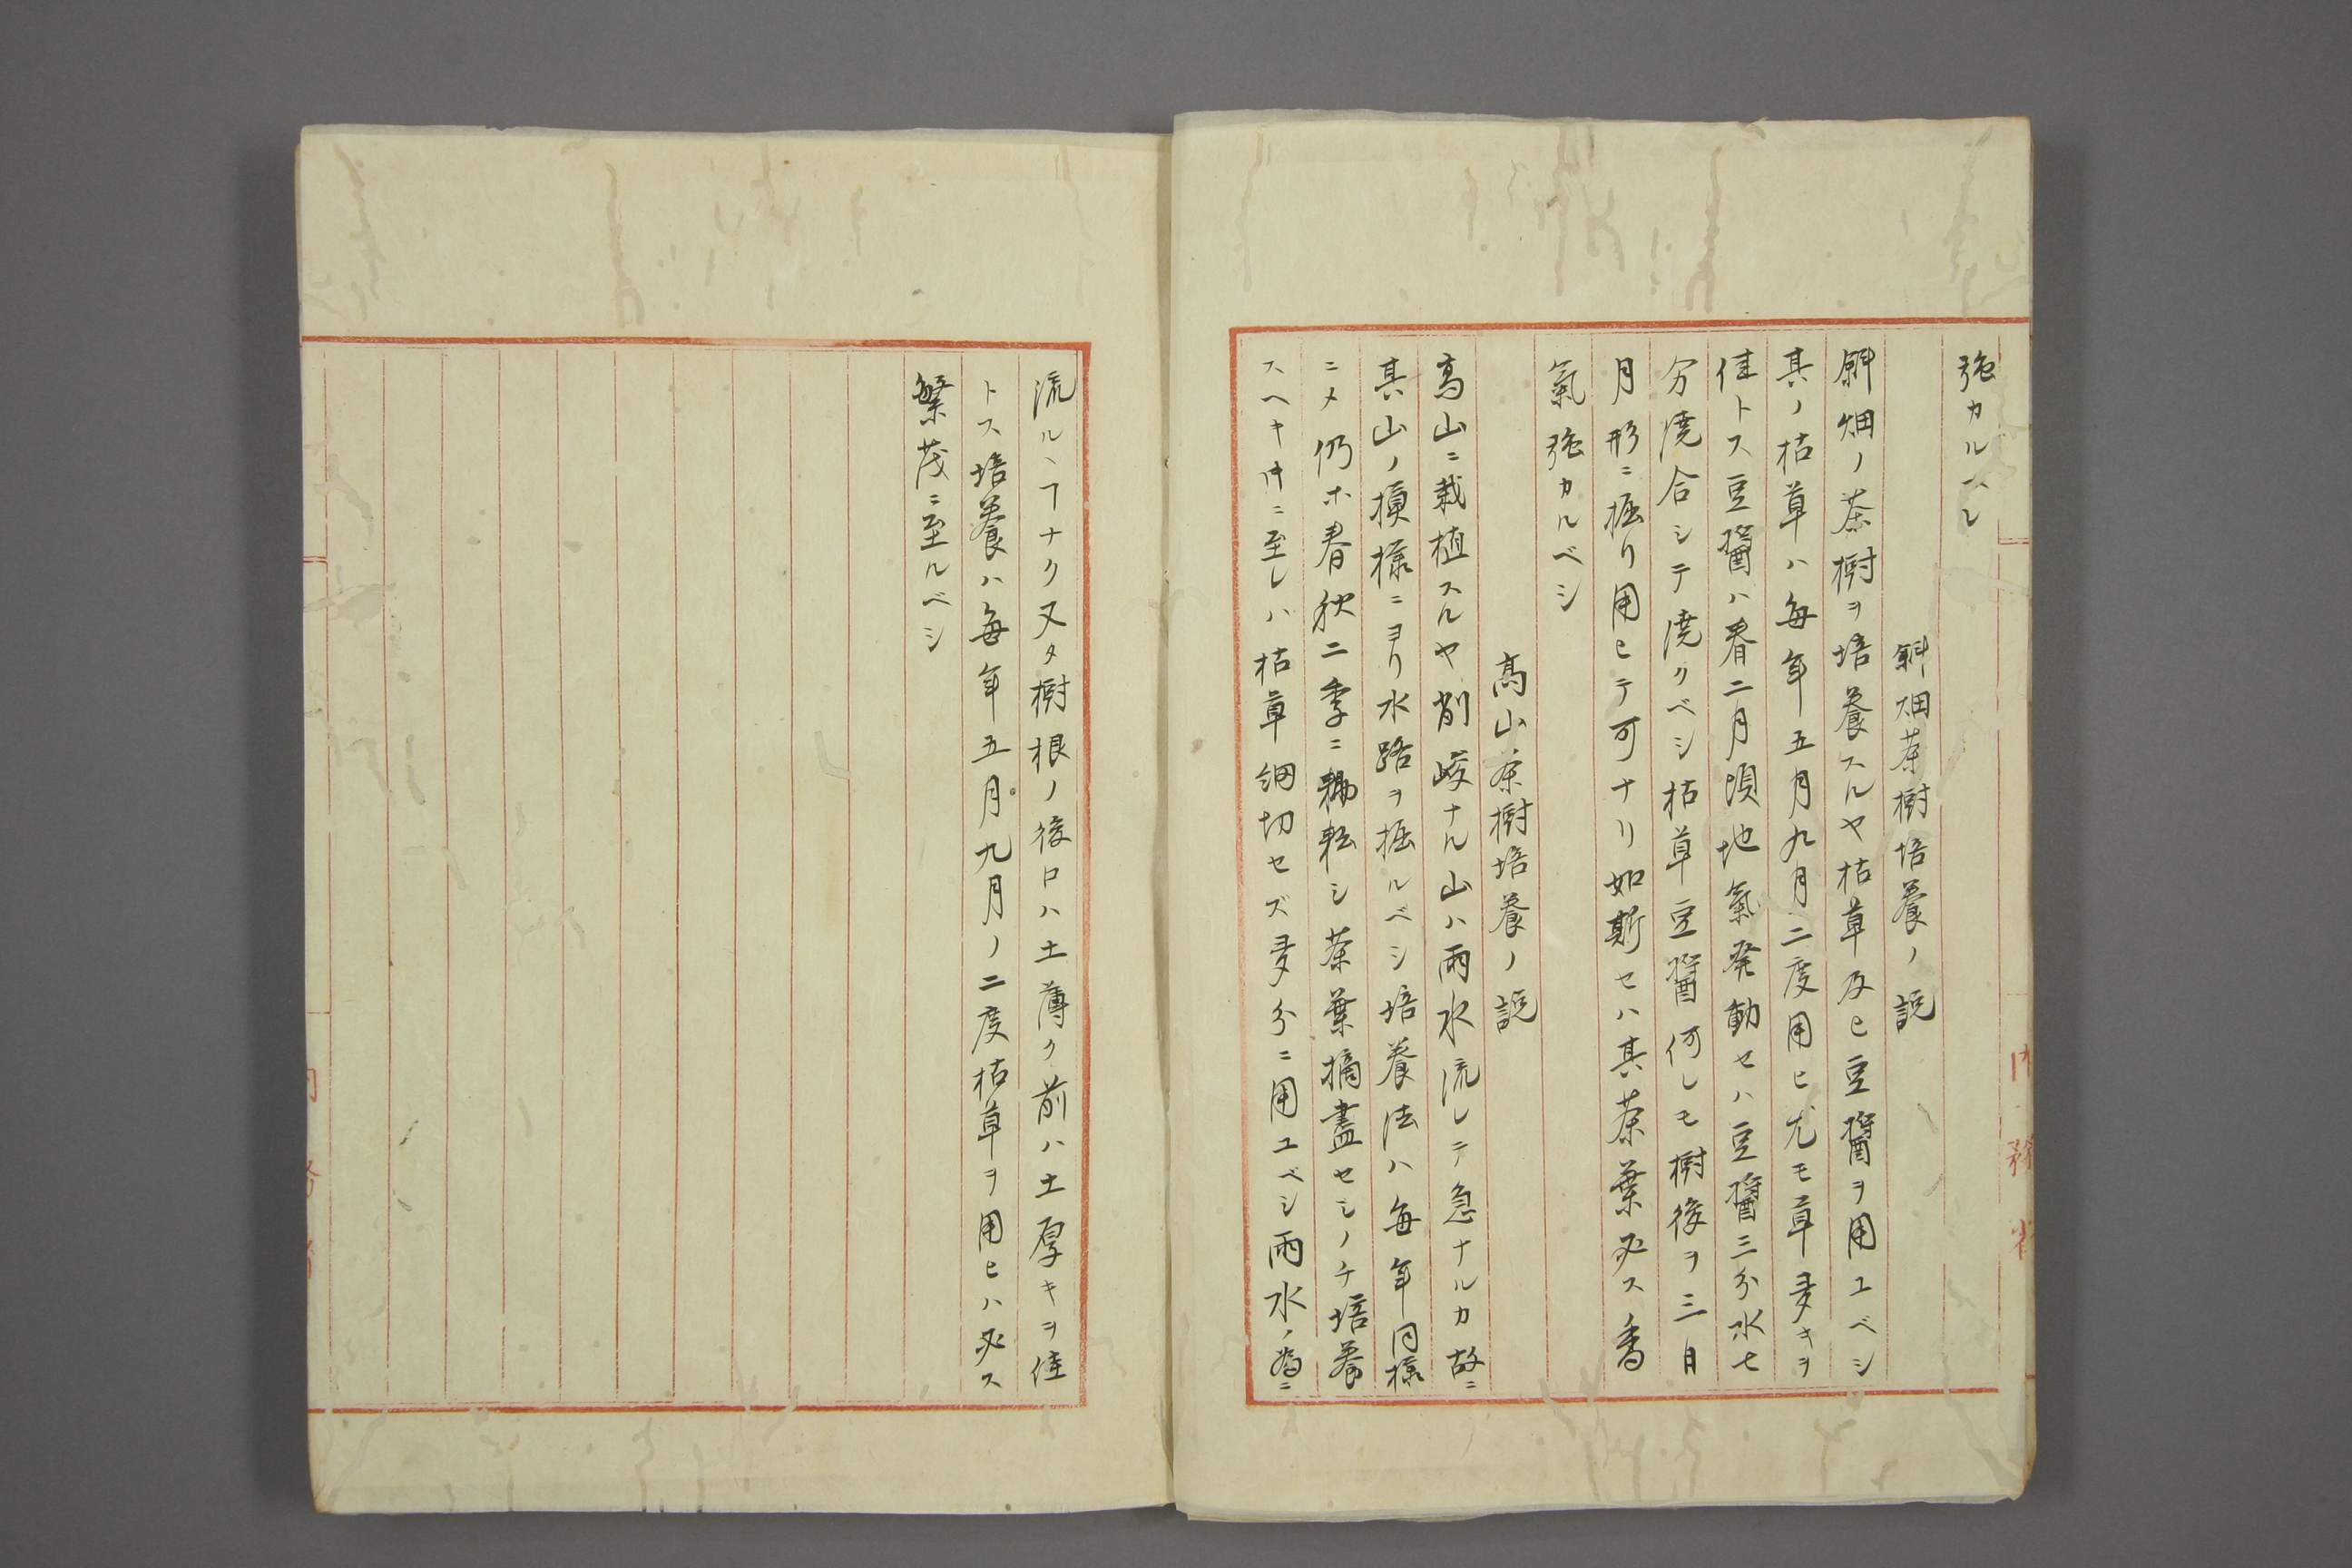 強カルヘシ
斜畑茶樹培養ノ説
斜畑ノ茶樹ヲ培養スルヤ枯草及ヒ豆醤ヲ用ユベシ
其ノ枯草ハ毎年五月九月二度用ヒ尤モ草多キヲ
佳トス豆醤ハ春二月頃地氣発動セハ豆醤三分水七
分澆合シテ澆クベシ枯草豆醤何レモ樹後ヲ三日
月形ニ掘リ用ヒテ可ナリ如斯セハ其茶葉必ス香
氣強カルベシ
高山茶樹培養ノ説
高山ニ栽植スルヤ削峻ナル山ハ雨水流レテ急ナルカ故ニ
其山ノ摸様ニヨリ水路ヲ掘ルベシ培養法ハ毎年同様
ニメ仍ホ春秋二季ニ耡転シ茶葉摘盡セシノチ培養
スヘキ時ニ至レハ枯草細切セズ多分ニ用ユベシ雨水ノ為ニ
流ルヽヿナク又タ樹根ノ後ロハ土薄ク前ハ土厚キヲ佳
トス培養ハ毎年五月九月ノ二度枯草ヲ用ヒハ必ス
繁茂ニ至ルベシ
内務省